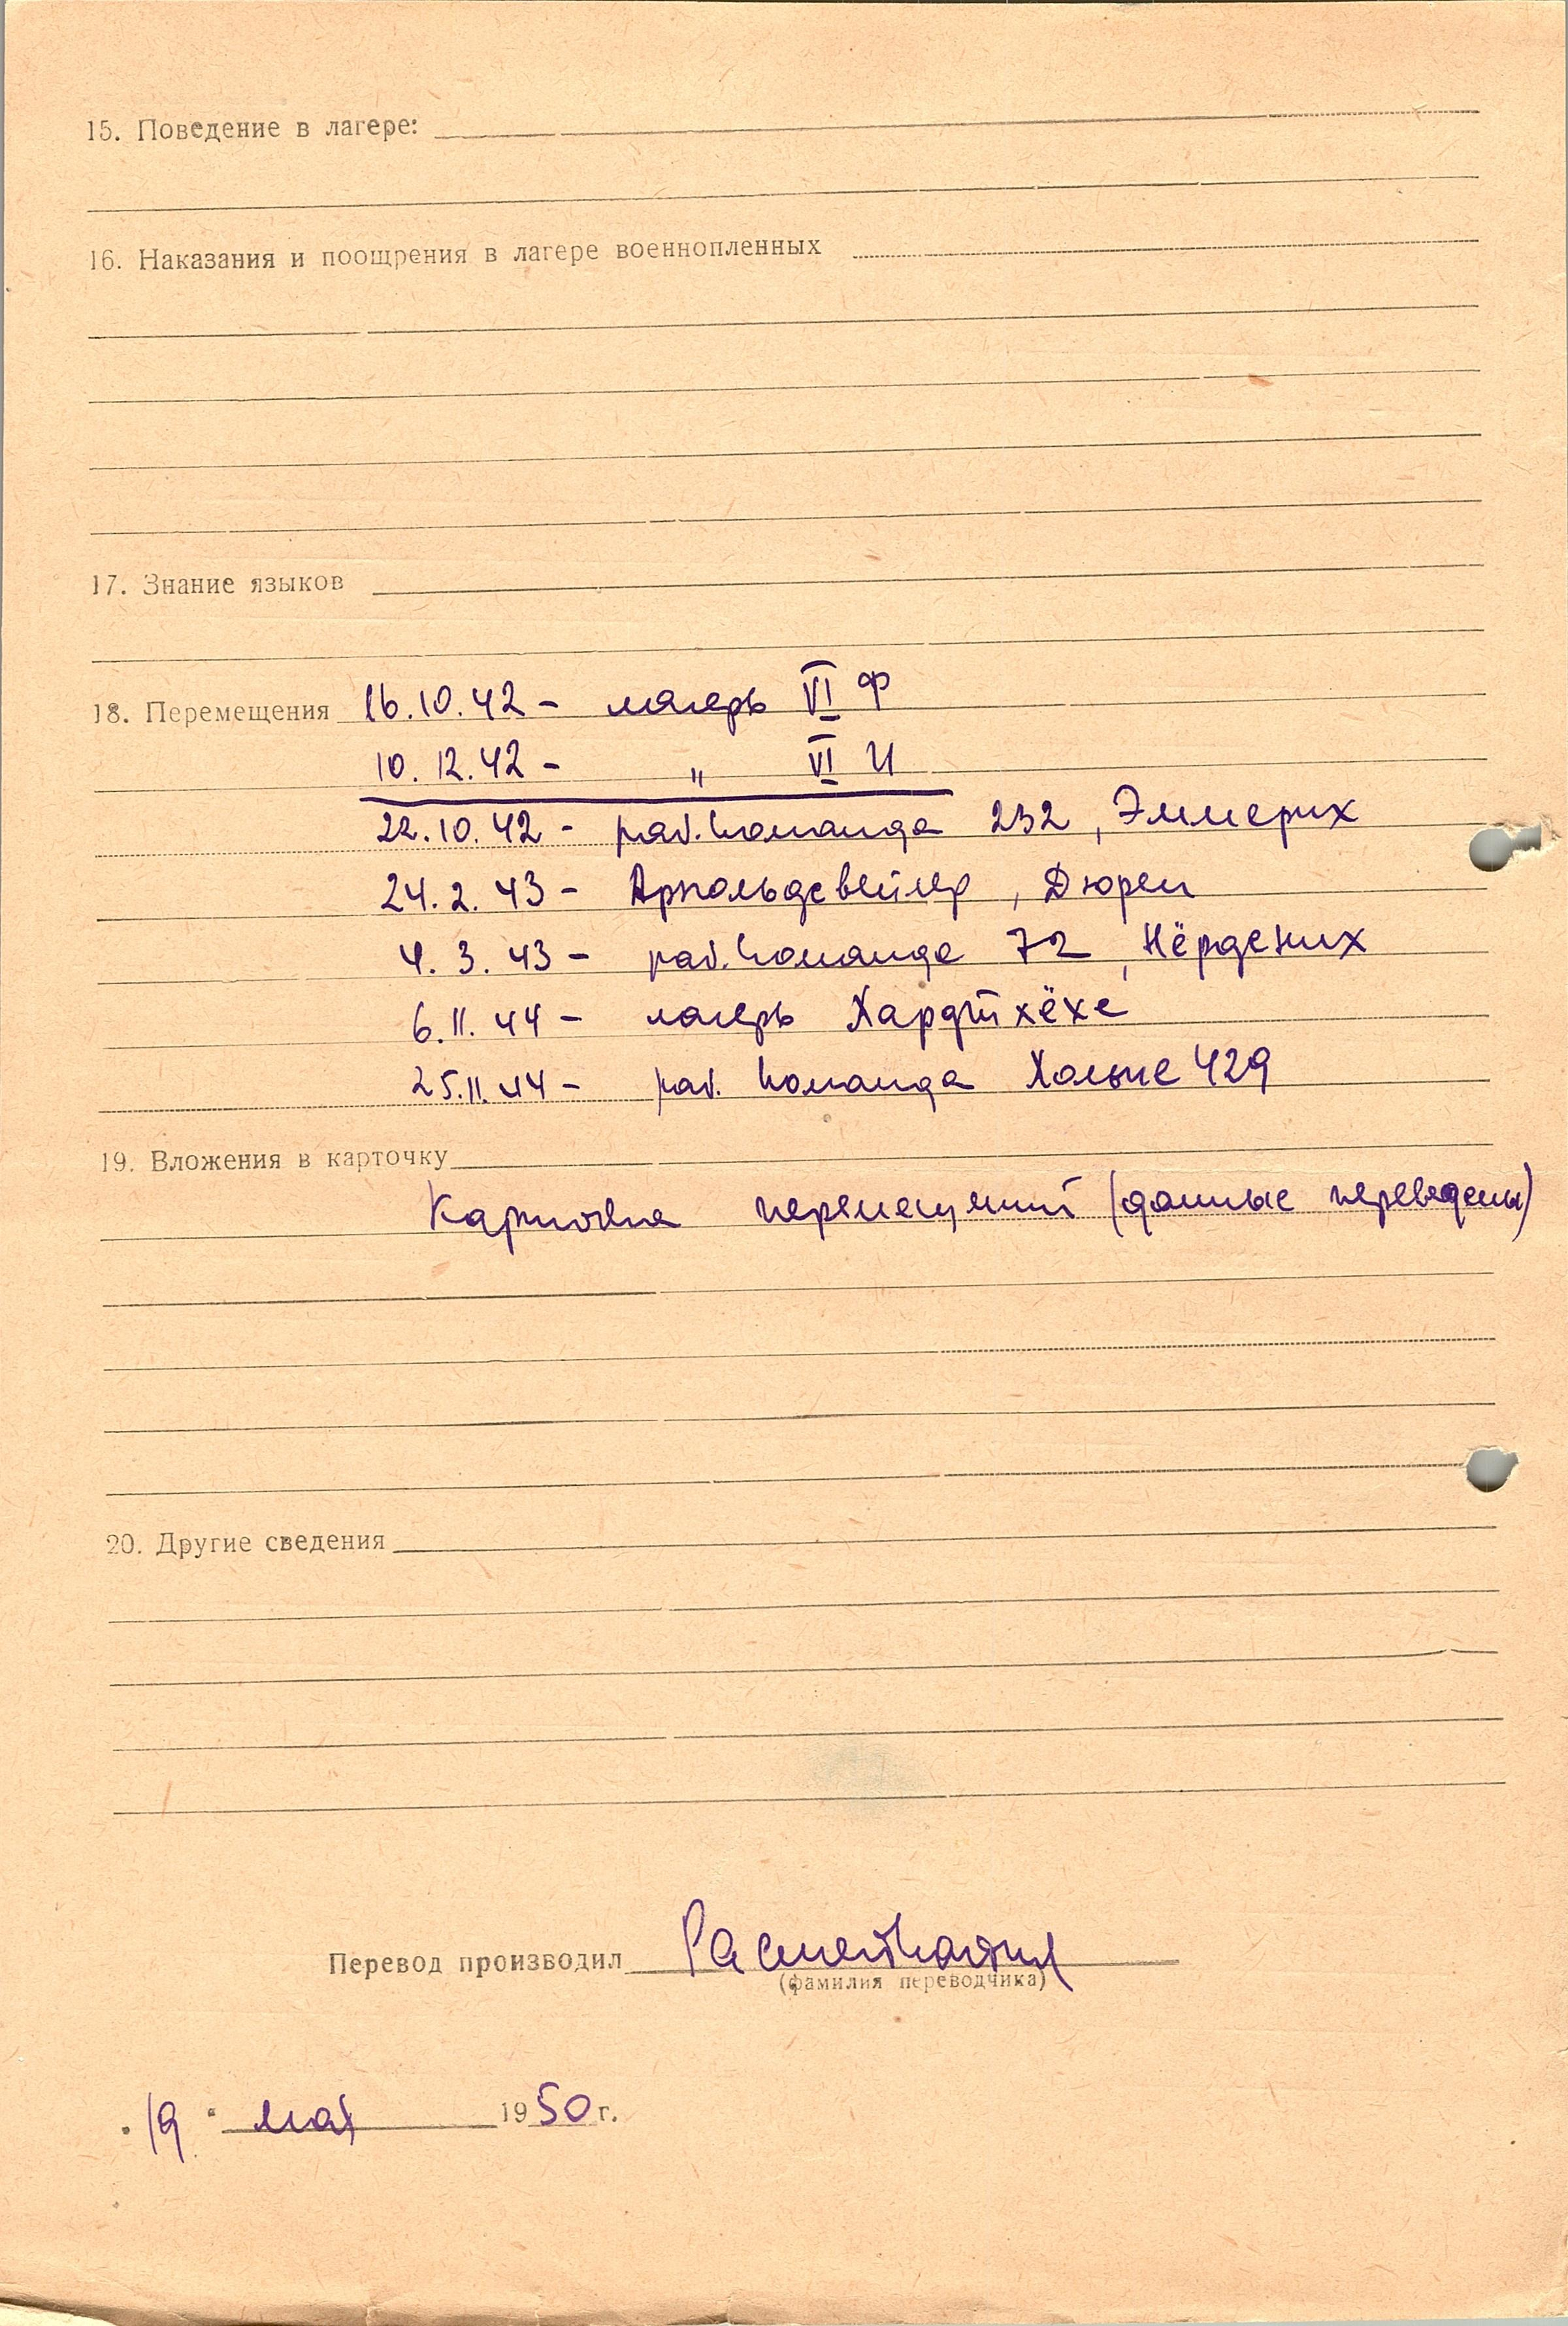 15. Поведение в лагере:
16. Наказания и поощрения в лагере военнопленных
17. Знание языков
18. Перемещения 16.10.42 - лагерь VI Ф
10.12.42 - " VI И
22.10.42 - раб. команда 232, Эммерих
24.2.43 - Арнольдсвейлер, Дюрен
4.3.43 - раб. команда 72, Нёрдених
6.11.44 - лагерь Хардтхёхе
25.11.44 - раб. команда 429
19. Вложения в карточку
Карточка перемещений (данные переведены)
20. Другие сведения
Перевод производил
(фамилия переводчика)
"19" мая 1950 г.